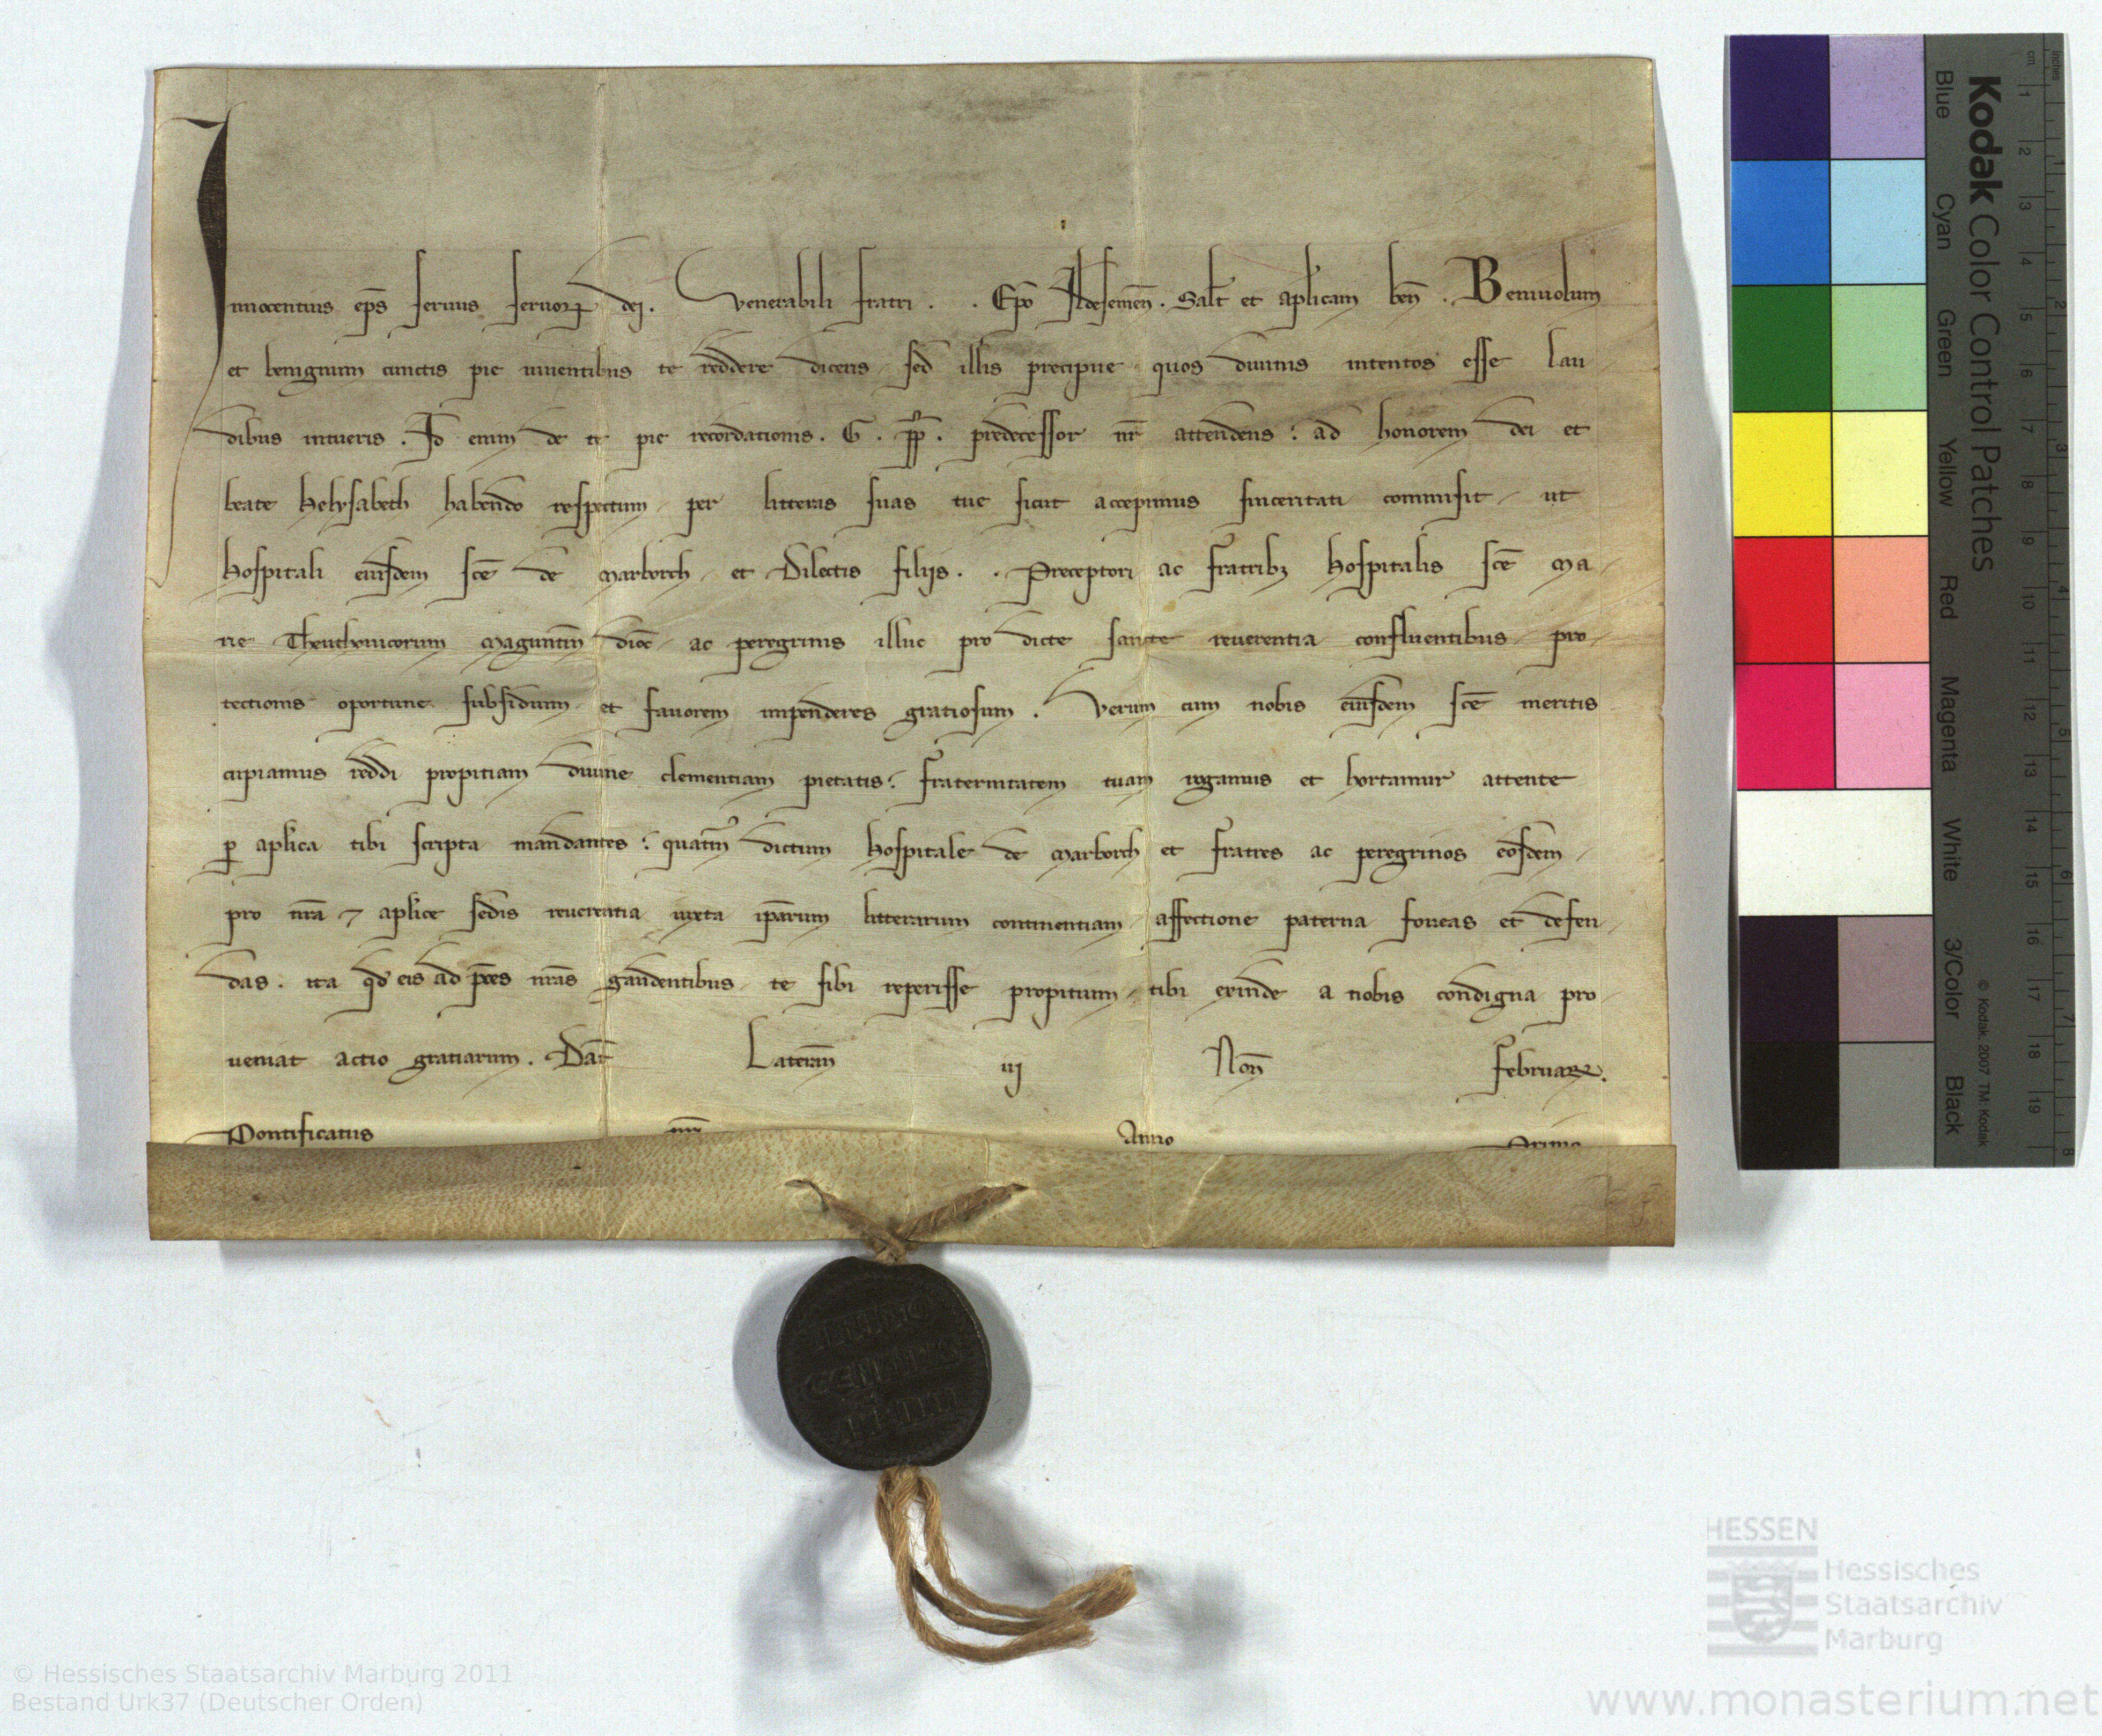 Innocentius ep̄s seruus seruoꝝ dei. Venerabili fratri . . Ep̄o Ildesemen̄. Sal̄t et ap̄licam ben̄. Beniuolum
et benignum cunctis pie uiuentibus te reddere diceris sed illis precipue quos diuinis intentos esse lau
dibus intueris. Id enim de te pie recordationis. G. pp̄. predecessor nr̄ attendens: ad honorem dei et
beate Helysabeth habendo respectum per litteras suas tue sicut accepimus sinceritati commisit ut
hospitali eiusdem sc̄e de Marborch et Dilectis filijs. . Preceptori ac fratribꝫ Hospitalis sc̄e Ma
rie Theuthonicorum Maguntin̄ dioc̄ ac peregrinis illuc pro dicte sancte reuerentia confluentibus pro
tectionis oportune subsidium et fauorem impenderes gratiosum. Verum cum nobis eiusdem sc̄e meritis
cupiamus reddi propitiam diuine clementiam pietatis: fraternitatem tuam rogamus et hortamur attente
ꝑ ap̄lica tibi scripta mandantes: quatin̄ dictum hospitale de Marborch et fratres ac peregrinos eosdem
pro nr̄a ⁊ ap̄lice sedis reuerentia iuxta ip̄arum litterarum continentiam affectione paterna foueas et defen
das. ita qd̄ eis ad p̄ces nr̄as gaudentibus te sibi reperisse propitium tibi exinde a nobis condigna pro
ueniat actio gratiarum. Dat̄ Lateran̄ iij Non̄ Februaꝝ.
Pontificatus nr̄i Anno Primo
Kodak Color Control Patches
Blue Cyan Green Yellow Red Magenta White 3/Color Black
© Kodak, 2007 TM: Kodak
inches 1 2 3 4 5 6 7 8
cm 1 2 3 4 5 6 7 8 9 10 11 12 13 14 15 16 17 18 19
HESSEN
Hessisches
Staatsarchiv
Marburg
© Hessisches Staatsarchiv Marburg 2011
Bestand Urk37 (Deutscher Orden)
www.monasterium.net